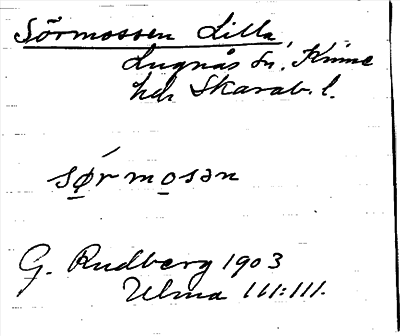 Sörmossen Lilla,
Lugnås sn, Kinne
hd Skarab. l.
sǿrmosən
G. Rudberg 1903
Ulma 111:111.